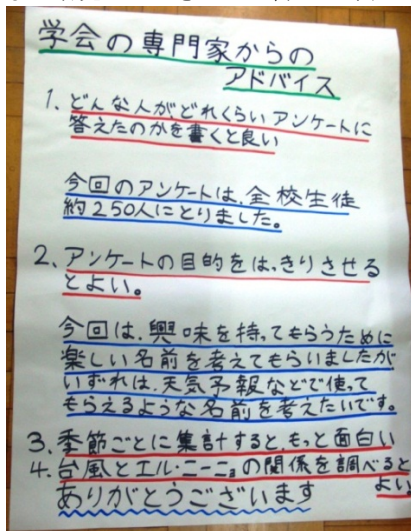 学会の専門家からの
アドバイス
1. どんな人がどれくらいアンケートに
答えたのかを書くと良い
今回のアンケートは、全校生徒
約250人にとりました。
2、アンケートの目的をはっきりさせる
とよい。
今回は、興味を持ってもらうために
楽しい名前を考えてもらいましたが
いずれは、天気予報などで使って
もらえるような名前を考えたいです。
3、季節ごとに集計すると、もっと面白い
4、台風とエル・ニーニョの関係を調べると
よい
ありがとうございます